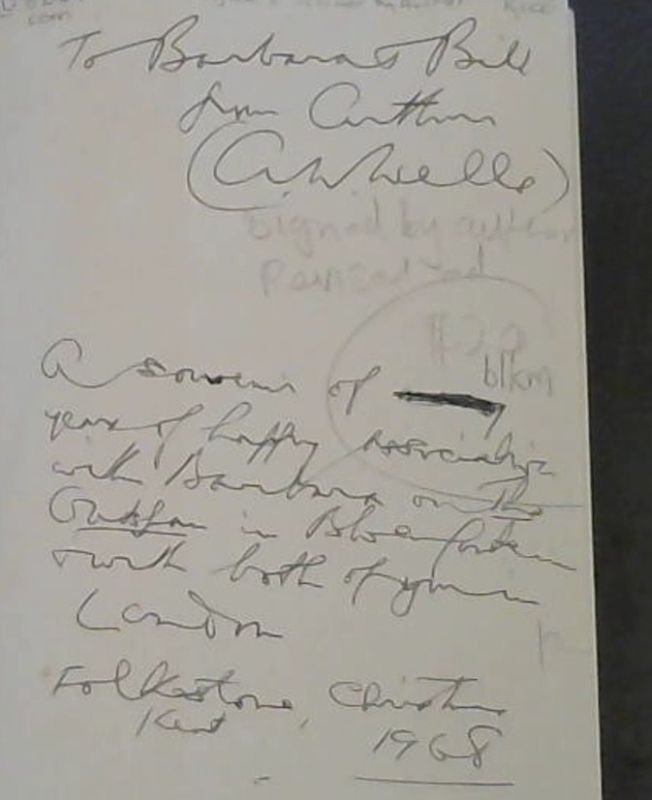 To Barbara & Bill
from Arthur
(A. W. Wells)
Signed by author
Revised ed
R20
blkm
A souvenir of
years of happy association
with Barbara on The
Outspan in Bloemfontein
& with both of you in
London
Folkestone, Christmas
Kent
1968